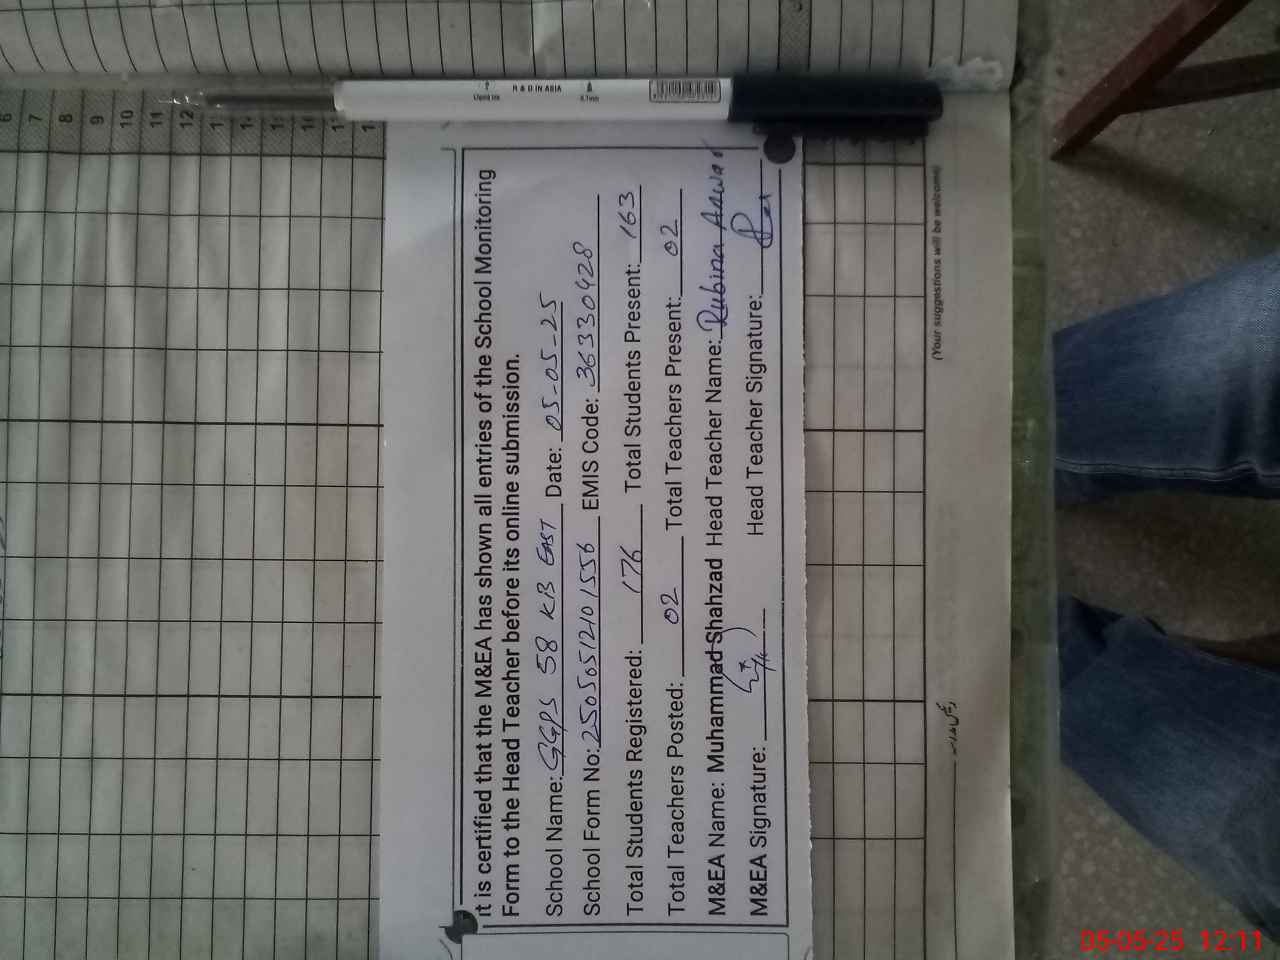 It is certified that the M&EA has shown all entries of the School Monitoring
Form to the Head Teacher before its online submission.
School Name: GGPS 58 KB EAST Date: 05-05-25
School Form No: 25050512101556 EMIS Code: 36330428
Total Students Registered: 176 Total Students Present: 163
Total Teachers Posted: 02 Total Teachers Present: 02
M&EA Name: Muhammad Shahzad Head Teacher Name: Rubina Anwar
M&EA Signature: Head Teacher Signature:
(Your suggestions will be welcom)
R & D IN ASIA
Liquid Ink 0.7mm
6
7
8
9
10
11
12
05-05-25 12:11